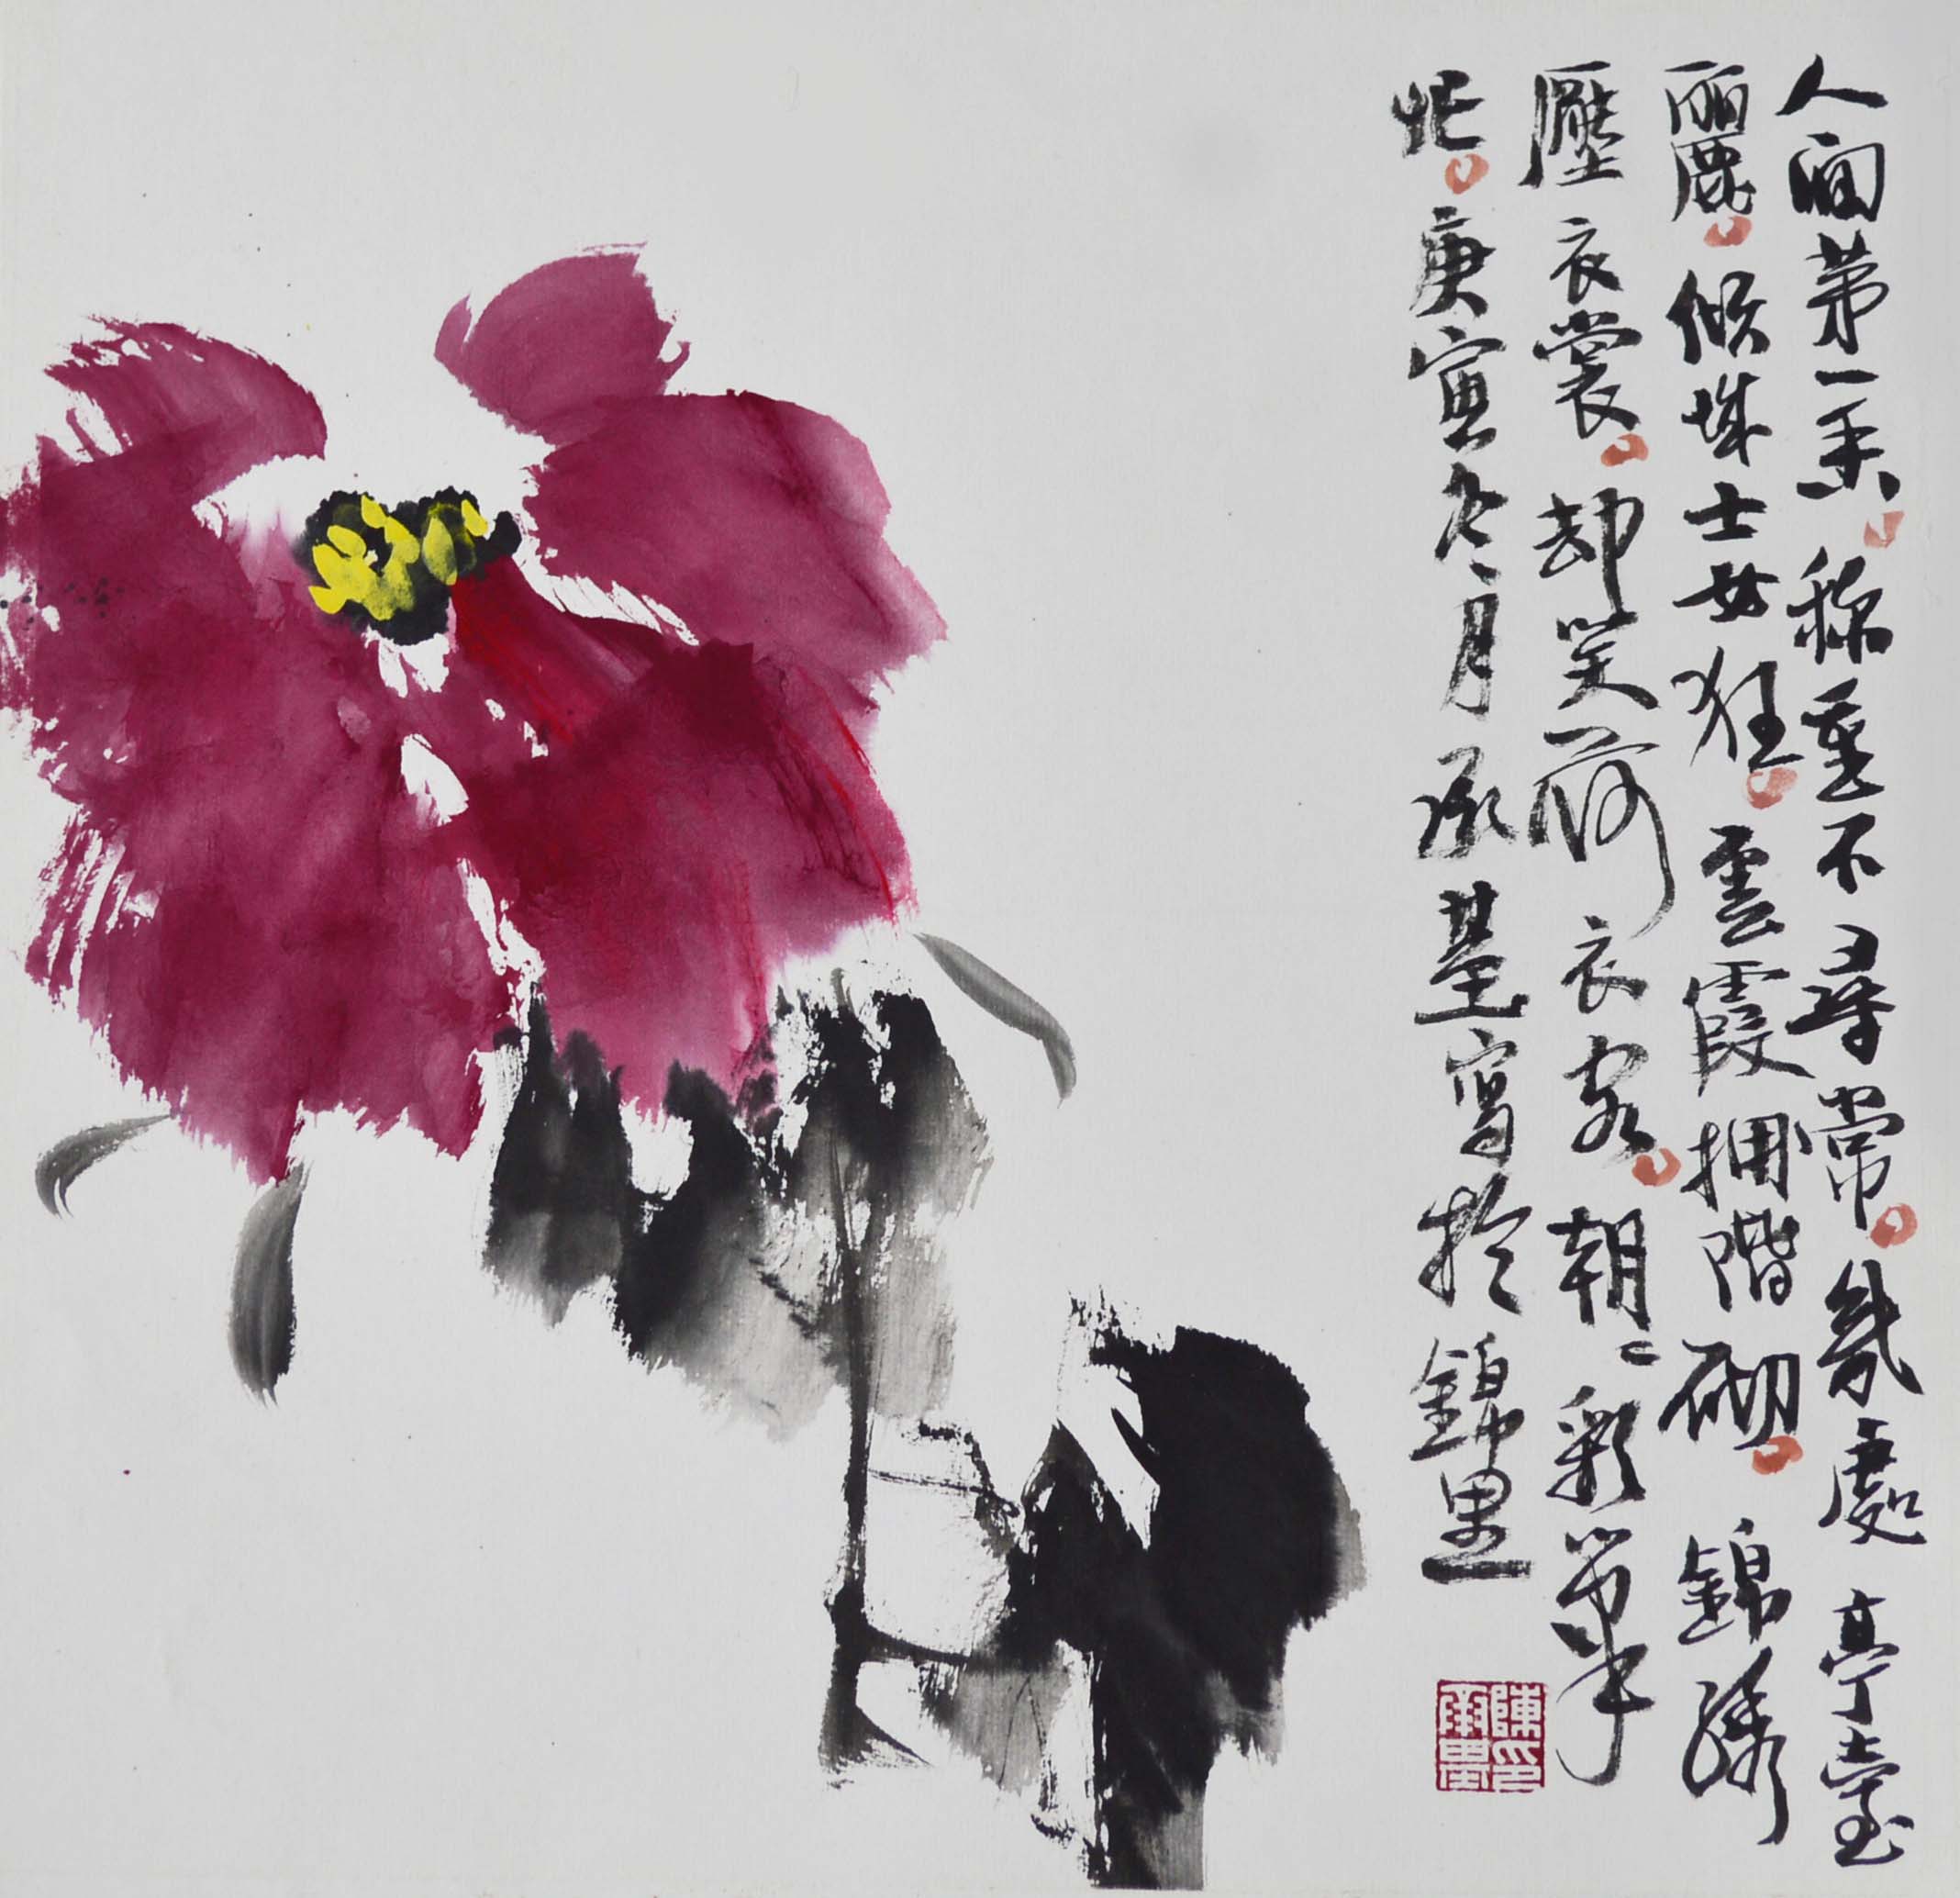 人間第一香。稱重不尋常。幾處亭臺
麗。傾城士女狂。雲霞擁階砌。錦繡
壓衣裳。却笑荷衣客。朝々彩筆
忙。庚寅冬月承基寫於錦里
陳印
承基